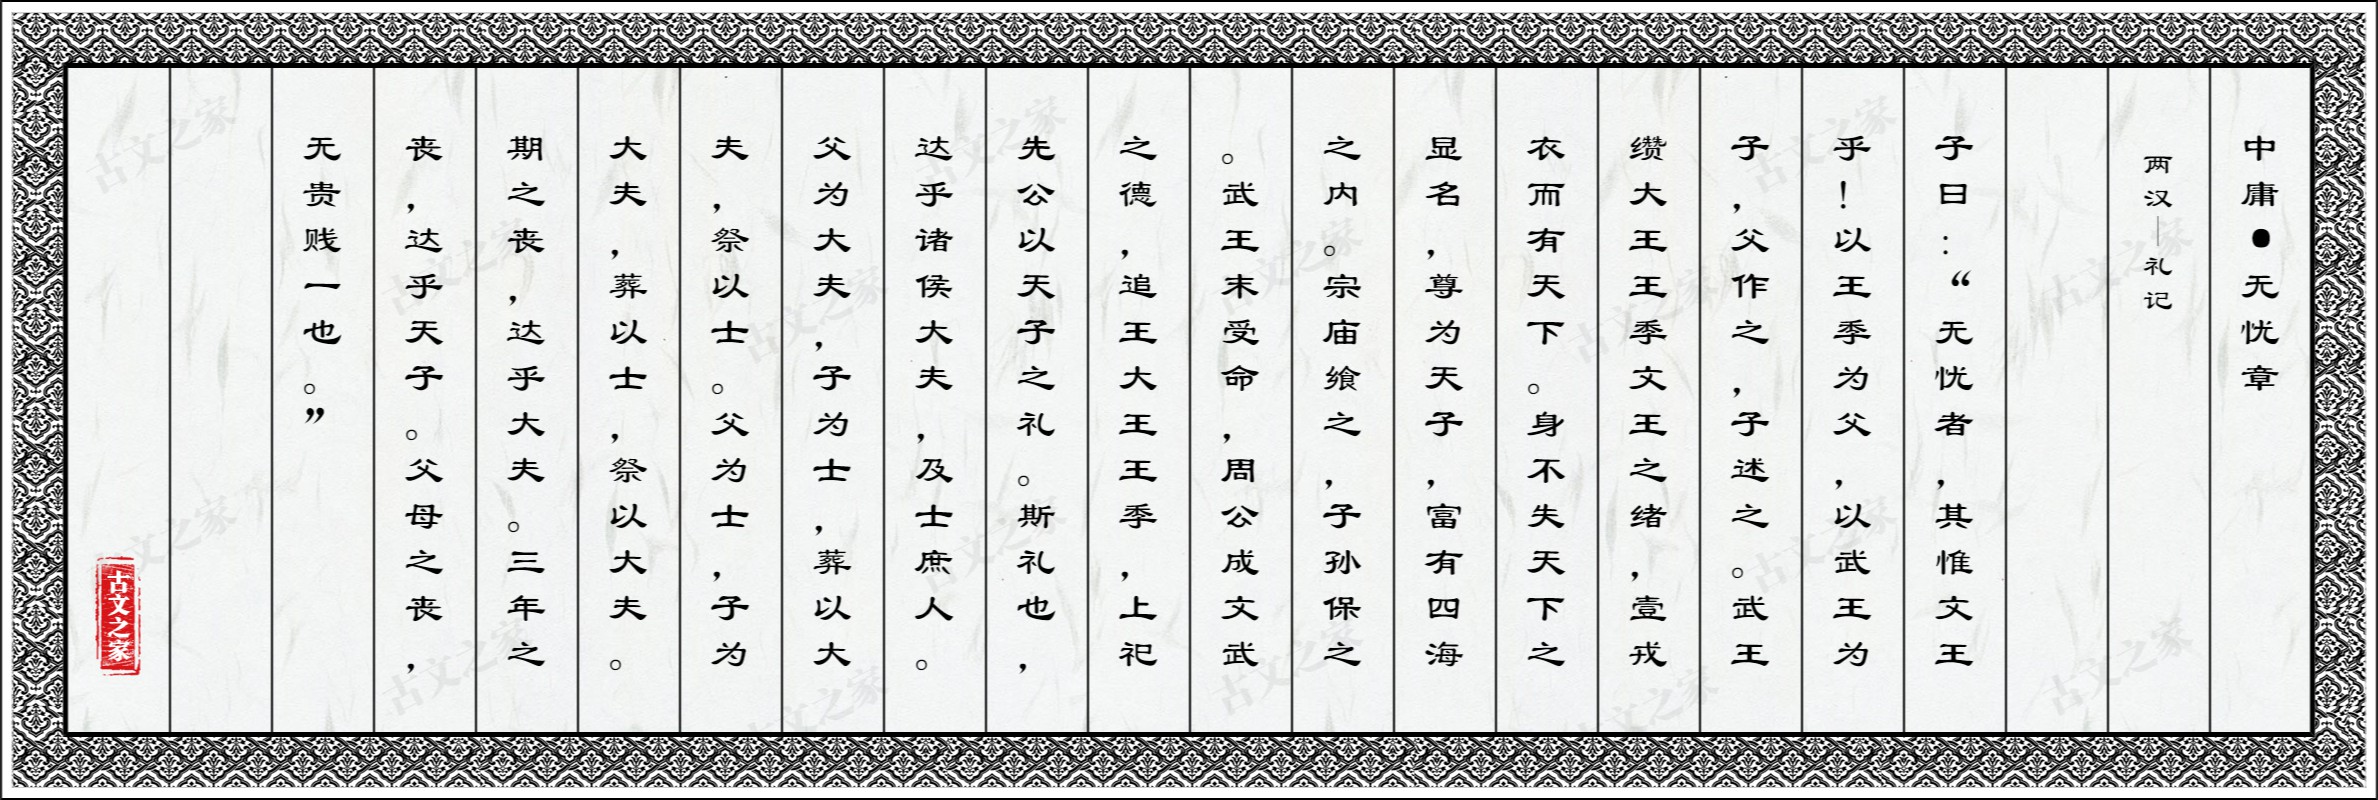 中庸●无忧章
两汉—礼记
子曰:“无忧者,其惟文王
乎!以王季为父,以武王为
子,父作之,子述之。武王
缵大王王季文王之绪,壹戎
衣而有天下。身不失天下之
显名,尊为天子,富有四海
之内。宗庙飨之,子孙保之
。武王末受命,周公成文武
之德,追王大王王季,上祀
先公以天子之礼。斯礼也,
达乎诸侯大夫,及士庶人。
父为大夫,子为士,葬以大
夫,祭以士。父为士,子为
大夫,葬以士,祭以大夫。
期之丧,达乎大夫。三年之
丧,达乎天子。父母之丧,
无贵贱一也。”
古文之家